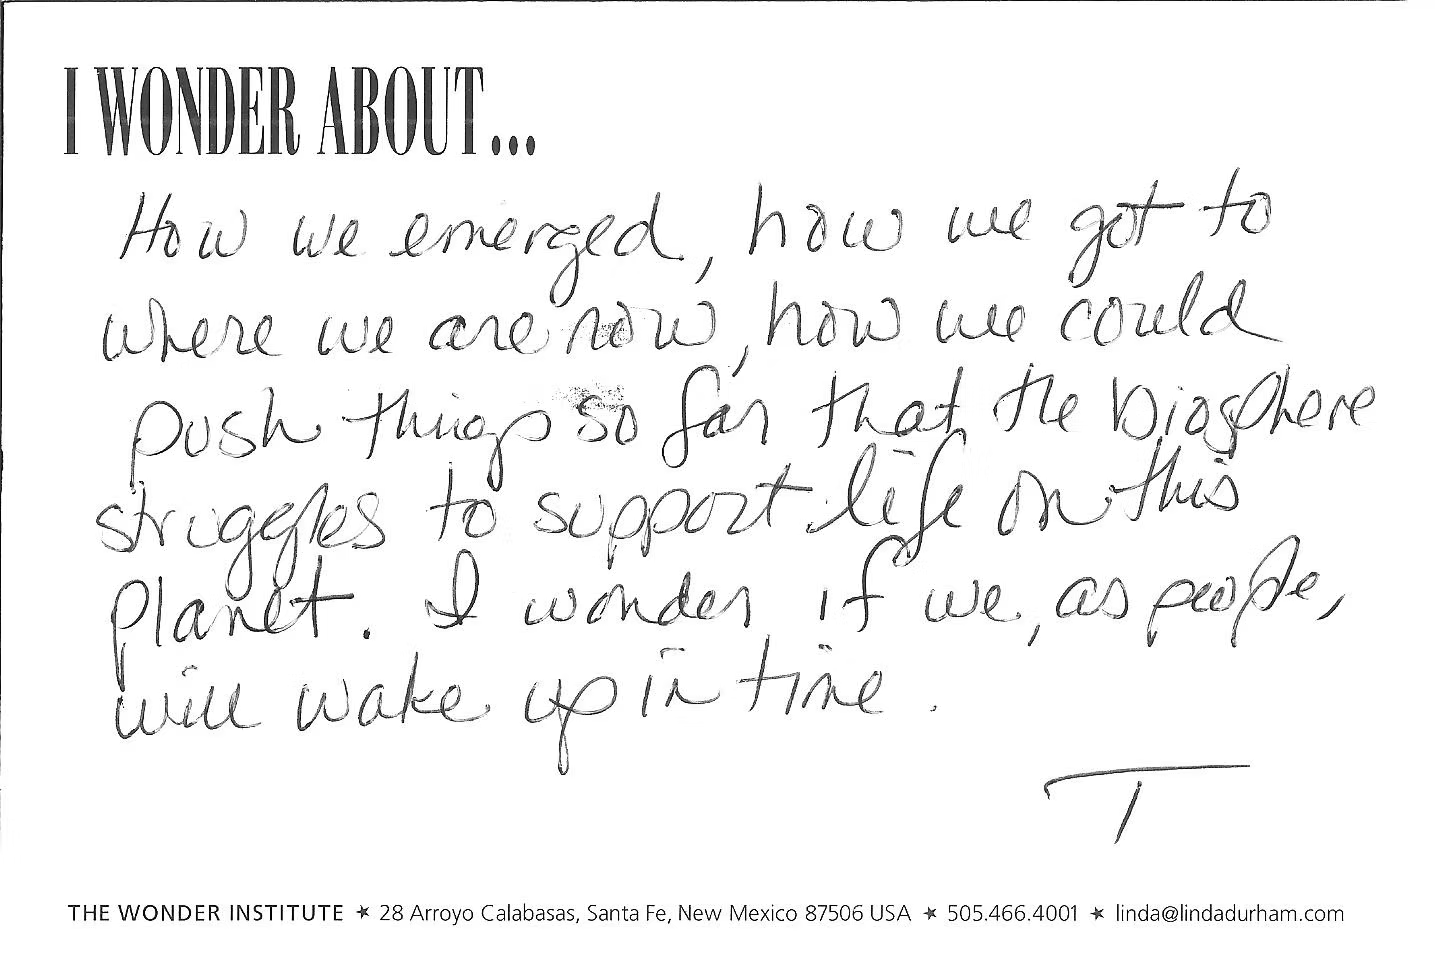 I WONDER ABOUT...
How we emerged, how we got to
where we are now, how we could
push things so far that the biosphere
struggles to support life on this
planet. I wonder if we, as people,
will wake up in time.
T
THE WONDER INSTITUTE ★ 28 Arroyo Calabasas, Santa Fe, New Mexico 87506 USA ★ 505.466.4001 ★ linda@lindadurham.com